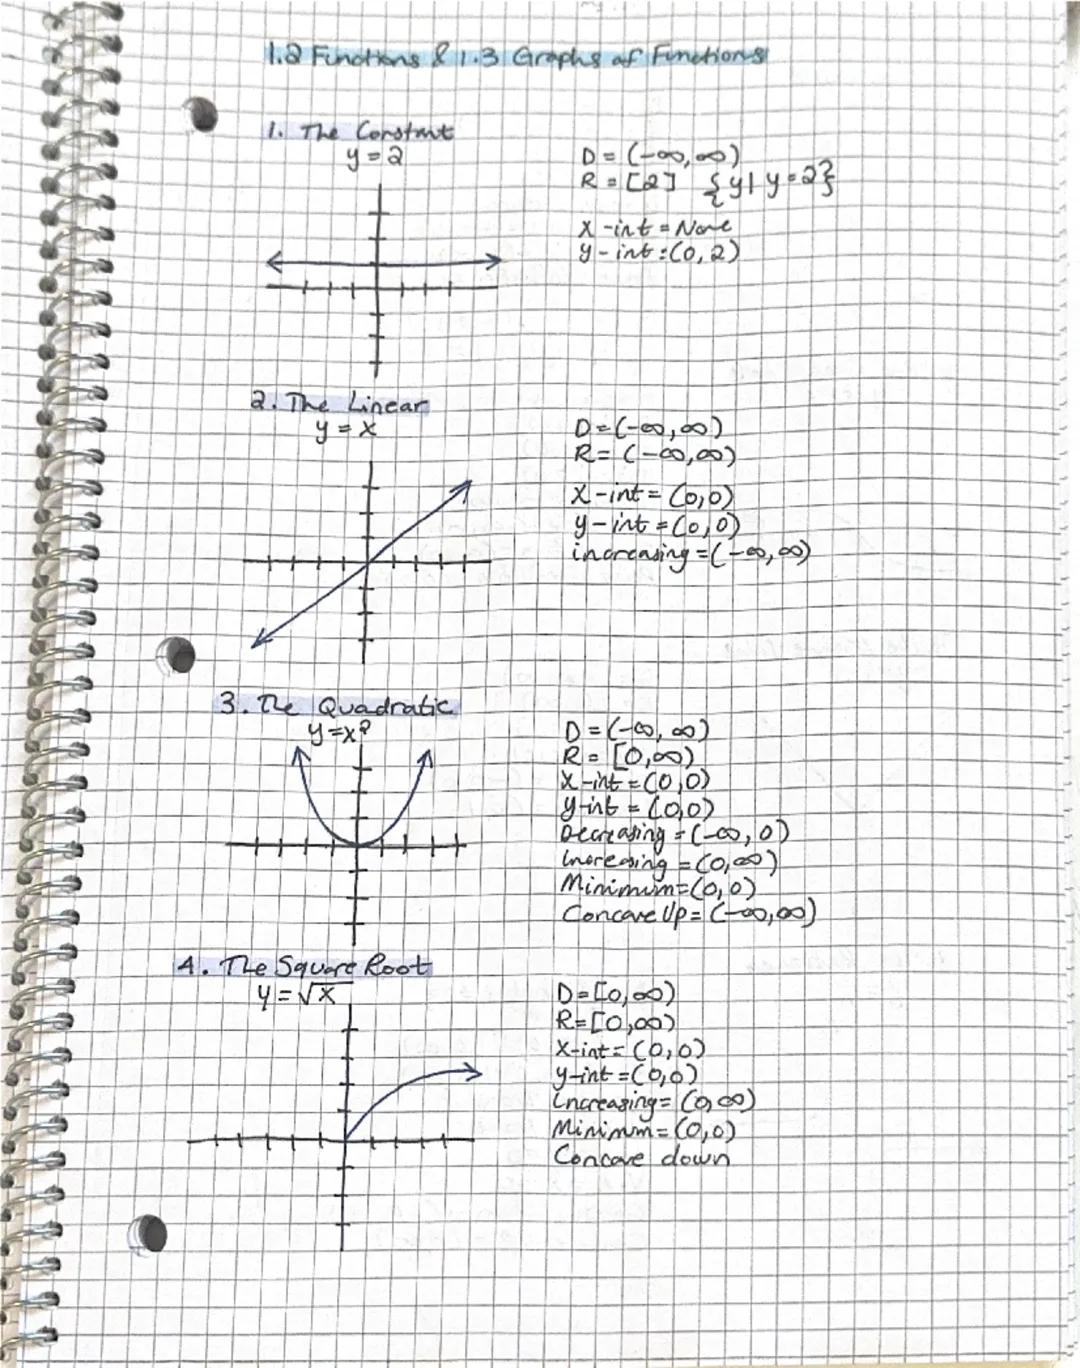 1.2 Functions & 1.3 Graphs of Functions
1. The Constant
y = 2
D = (-∞, ∞)
R = [2] {y| y = 2}
x-int = None
y-int : (0, 2)
2. The Linear
y = x
D = (-∞, ∞)
R = (-∞, ∞)
X-int = (0,0)
y-int = (0,0)
increasing = (-∞, ∞)
3. The Quadratic
y = x²
D = (-∞, ∞)
R = [0, ∞)
X-int = (0,0)
y-int = (0,0)
Decreasing = (-∞, 0)
Increasing = (0, ∞)
Minimum = (0,0)
Concave Up = (-∞, ∞)
4. The Square Root
y = √x
D = [0, ∞)
R = [0, ∞)
X-int = (0,0)
y-int = (0,0)
Increasing = (0, ∞)
Minimum = (0,0)
Concave down